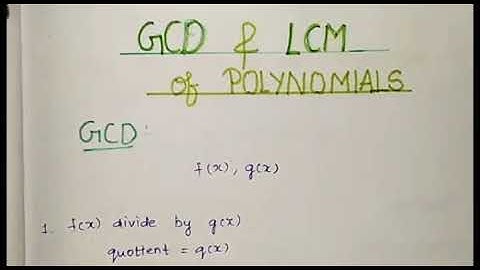 GCD & LCM
of POLYNOMIALS
GCD:
f(x), g(x)
1. f(x) divide by g(x)
quottent = q(x)